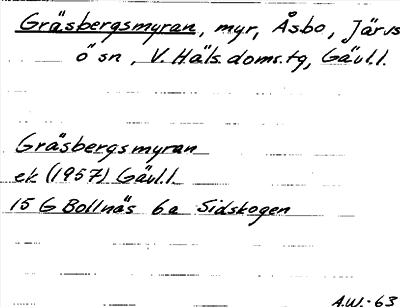 Gräsbergsmyran, myr, Åsbo, Järvs
ö sn, V. Häls. doms.tg, Gävl.l.
Gräsbergsmyran
ek (1957) Gävl.l
15 G Bollnäs 6a Sidskogen
A.W.-63